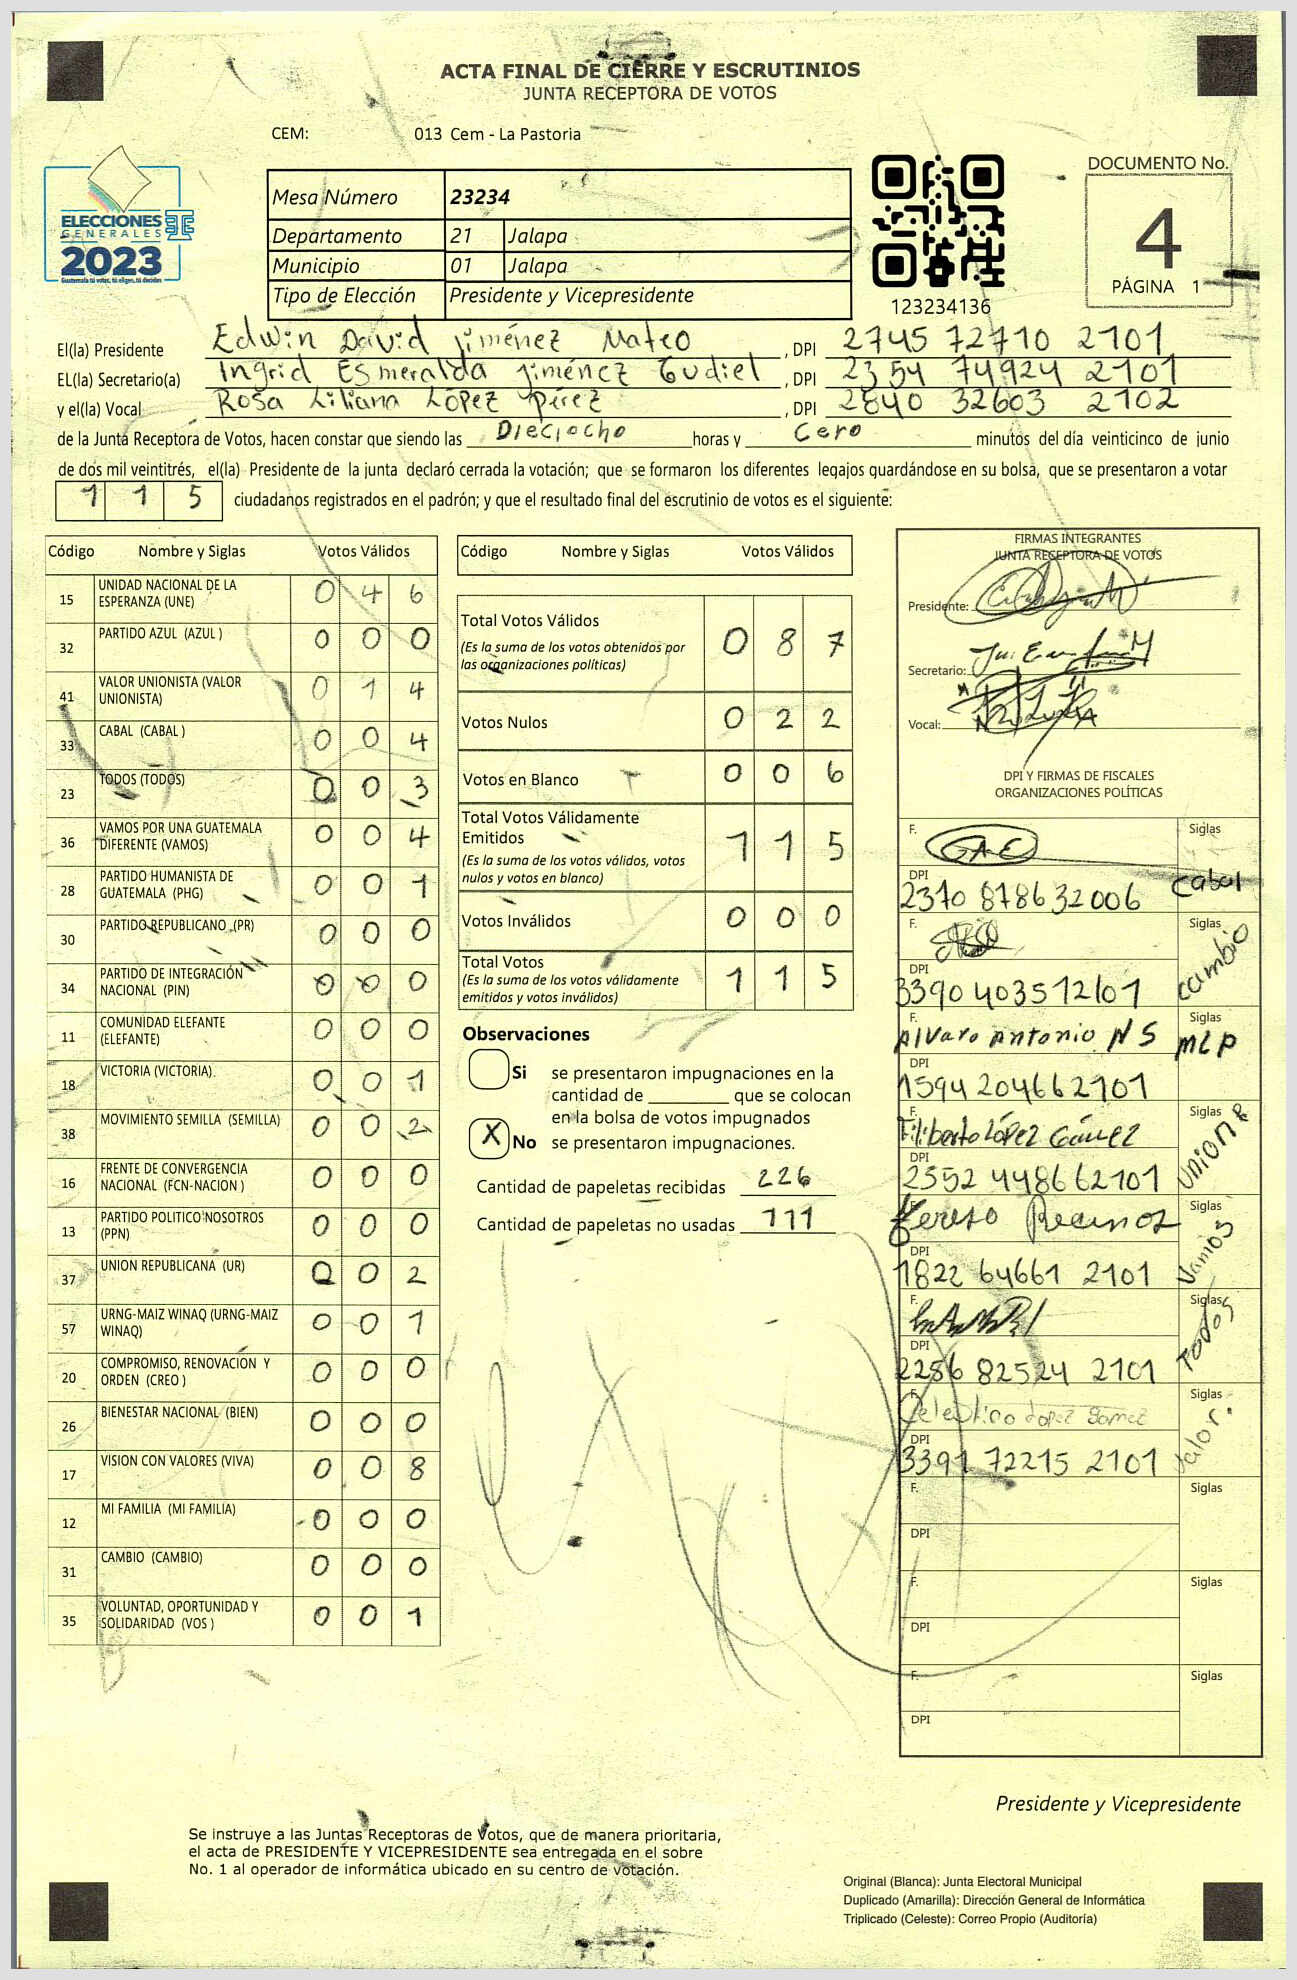 ACTA FINAL DE CIERRE Y ESCRUTINIOS
JUNTA RECEPTORA DE VOTOS
CEM: 013 Cem - La Pastoria
ELECCIONES
GENERALES
2023
Guatemala tú votas, tú eliges, tú decides
Mesa Número 23234
Departamento 21 Jalapa
Municipio 01 Jalapa
Tipo de Elección Presidente y Vicepresidente
123234136
DOCUMENTO No.
4
PÁGINA 1
El(la) Presidente Edwin David Jiménez Mateo , DPI 2745 72710 2101
EL(la) Secretario(a) Ingrid Esmeralda Jiménez Gudiel , DPI 2354 74924 2101
y el(la) Vocal Rosa Liliana López Pérez , DPI 2840 32603 2102
de la Junta Receptora de Votos, hacen constar que siendo las Dieciocho horas y Cero minutos del día veinticinco de junio
de dos mil veintitrés, el(la) Presidente de la junta declaró cerrada la votación; que se formaron los diferentes legajos guardándose en su bolsa, que se presentaron a votar
1 1 5 ciudadanos registrados en el padrón; y que el resultado final del escrutinio de votos es el siguiente:
Código Nombre y Siglas Votos Válidos
15 UNIDAD NACIONAL DE LA ESPERANZA (UNE) 0 4 6
32 PARTIDO AZUL (AZUL ) 0 0 0
41 VALOR UNIONISTA (VALOR UNIONISTA) 0 1 4
33 CABAL (CABAL ) 0 0 4
23 TODOS (TODOS) 0 0 3
36 VAMOS POR UNA GUATEMALA DIFERENTE (VAMOS) 0 0 4
28 PARTIDO HUMANISTA DE GUATEMALA (PHG) 0 0 1
30 PARTIDO REPUBLICANO (PR) 0 0 0
34 PARTIDO DE INTEGRACIÓN NACIONAL (PIN) 0 0 0
11 COMUNIDAD ELEFANTE (ELEFANTE) 0 0 0
18 VICTORIA (VICTORIA) 0 0 1
38 MOVIMIENTO SEMILLA (SEMILLA) 0 0 2
16 FRENTE DE CONVERGENCIA NACIONAL (FCN-NACION ) 0 0 0
13 PARTIDO POLITICO NOSOTROS (PPN) 0 0 0
37 UNION REPUBLICANA (UR) 0 0 2
57 URNG-MAIZ WINAQ (URNG-MAIZ WINAQ) 0 0 1
20 COMPROMISO, RENOVACION Y ORDEN (CREO ) 0 0 0
26 BIENESTAR NACIONAL (BIEN) 0 0 0
17 VISION CON VALORES (VIVA) 0 0 8
12 MI FAMILIA (MI FAMILIA) 0 0 0
31 CAMBIO (CAMBIO) 0 0 0
35 VOLUNTAD, OPORTUNIDAD Y SOLIDARIDAD (VOS ) 0 0 1
Código Nombre y Siglas Votos Válidos
Total Votos Válidos 0 8 7
(Es la suma de los votos obtenidos por
las organizaciones políticas)
Votos Nulos 0 2 2
Votos en Blanco 0 0 6
Total Votos Válidamente
Emitidos 1 1 5
(Es la suma de los votos válidos, votos
nulos y votos en blanco)
Votos Inválidos 0 0 0
Total Votos 1 1 5
(Es la suma de los votos válidamente
emitidos y votos inválidos)
Observaciones
Si se presentaron impugnaciones en la
cantidad de ________ que se colocan
en la bolsa de votos impugnados
X No se presentaron impugnaciones.
Cantidad de papeletas recibidas 226
Cantidad de papeletas no usadas 111
FIRMAS INTEGRANTES
JUNTA RECEPTORA DE VOTOS
Presidente:
Secretario:
Vocal:
DPI Y FIRMAS DE FISCALES
ORGANIZACIONES POLÍTICAS
F. Siglas
DPI Cabal
2370 87863 2006
F. Siglas
DPI cambio
3390 40351 2101
F. Siglas
Alvaro Antonio N S MLP
DPI
1594 20466 2101
F. Siglas
Filiberto López Gómez
DPI
2552 44866 2101
F. Siglas
Tereso Recinos Vamos
DPI
1822 64661 2101
F. Siglas
DPI Todos
2256 82524 2101
F. Siglas
Celestino Lopez Gomez Valor.
DPI
3391 72215 2101
F. Siglas
DPI
F. Siglas
DPI
F. Siglas
DPI
Presidente y Vicepresidente
Se instruye a las Juntas Receptoras de Votos, que de manera prioritaria,
el acta de PRESIDENTE Y VICEPRESIDENTE sea entregada en el sobre
No. 1 al operador de informática ubicado en su centro de votación.
Original (Blanca): Junta Electoral Municipal
Duplicado (Amarilla): Dirección General de Informática
Triplicado (Celeste): Correo Propio (Auditoría)